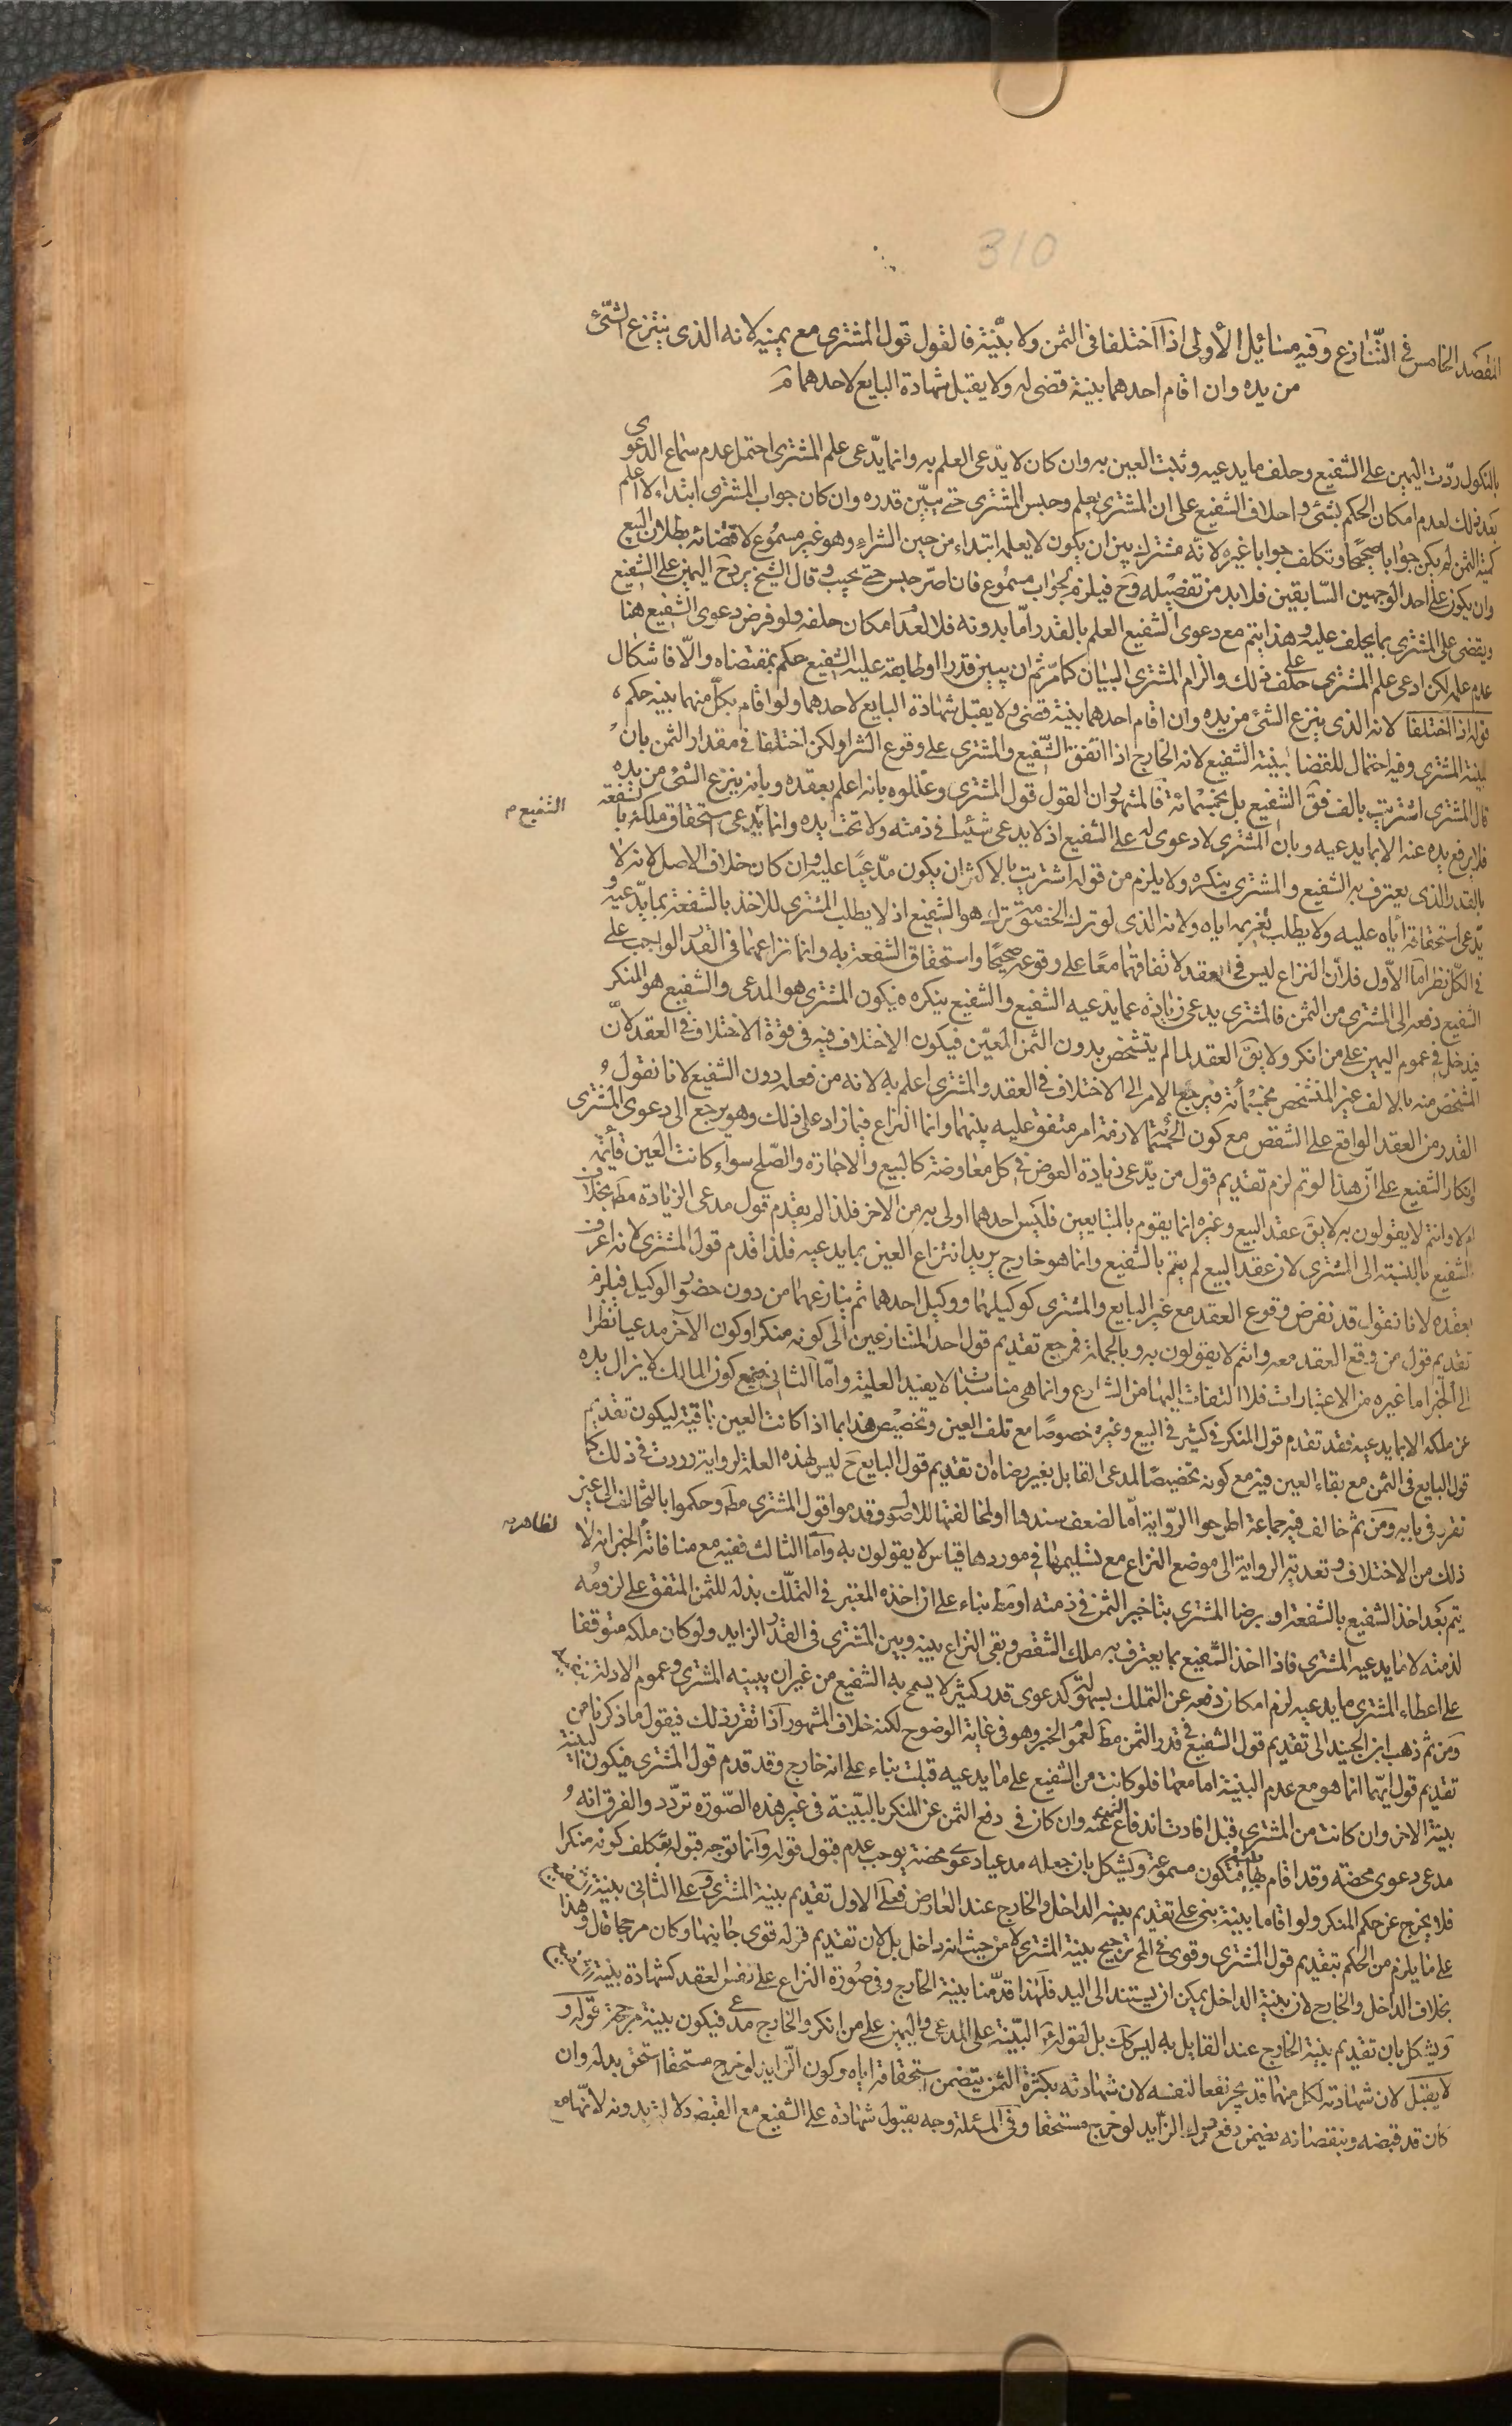 310
المقصد الخامس فى التنازع وفيه مسائل الأولى اذا اختلفا فى الثمن ولا بينة فالقول قول المشترى مع يمينه لانه الذى ينتزع الشئ
من يده وان اقام احدهما بينة قضى له ولا يقبل شهادة البايع لاحدهما م
بالنكول ردت اليمين على الشفيع وحلف ما يدعيه وثبت العين به وان كان لا يدعى العلم به وانما يدعى علم المشترى احتمل عدم سماع الدعوى
بعد ذلك لعدم امكان الحكم بشئ واحلاف الشفيع على ان المشترى يعلم وحبس المشترى حتى يبين قدره وان كان جواب المشترى ابتداء لا اعلم
كمية الثمن لم يكن جوابا صحيحا وتكلف جوابا غيره لانه مشترك بين ان يكون لا يعلمه ابتداء من حين الشراء وهو غير مسموع لاقتضائه بطلان البيع
وان يكون على احد الوجهين السابقين فلا بد من تفصيله وح فيلزم بجواب مسموع فان اصر حبس حتى يجيب وقال الشيخ يرد ح اليمين على الشفيع
ويقضى على المشترى بما يحلف عليه وهذا يتم مع دعوى الشفيع العلم بالقدر اما بدونه فلا لعدم امكان حلفه ولو فرض دعوى الشفيع هنا
عدم علمه لكن ادعى علم المشترى حلف على ذلك والزام المشترى البيان كما مر ثم ان يبين قدرا وطابقه عليه الشفيع حكم بمقتضاه والا فاشكال
قوله اذا اختلفا لانه الذى ينزع الشئ من يده وان اقام احدهما بينة قضى ولا يقبل شهادة البايع لاحدهما ولو اقام بكل منهما بينة حكم
ببينة المشترى وفيه احتمال للقضا ببينة الشفيع لانه الخارج اذا اتفق الشفيع والمشترى على وقوع الشرا ولكن اختلفا فى مقدار الثمن بان
قال المشترى اشتريت بالف فق الشفيع بل بخمسمائة فالمشهور ان القول قول المشترى وعللوه بانه اعلم بعقده وبانه ينزع الشئ من يده
فلا يرفع يده عنه الا بما يدعيه وبان المشترى لا دعوى له على الشفيع اذ لا يدعى شيئا فى ذمته ولا تحت يده وانما يدعى استحقاق ملكه بالشفعة
الشفيع م
بالقدر الذى يعترف به الشفيع والمشترى ينكره ولا يلزم من قوله اشتريت بالاكثر ان يكون مدعيا عليه وان كان خلاف الاصل لانه لا
يدعى استحقاقه اياه عليه ولا يطلب تغريمه اياه ولانه الذى لو ترك الخصومة ترك هو الشفيع اذ لا يطلب المشترى للاخذ بالشفعة بما يدعيه و
فى الكل نظر اما الاول فلان النزاع ليس فى العقد لاتفاقهما معا على وقوعه صحيحا واستحقاق الشفعة به وانما نزاعهما فى القدر الواجب على
الشفيع دفعه الى المشترى من الثمن فالمشترى يدعى زيادة عما يدعيه الشفيع والشفيع ينكره فيكون المشترى هو المدعى والشفيع هو المنكر
فيدخل فى عموم اليمين على من انكر ولا يق العقد لما لم يتشخص بدون الثمن المعين فيكون الاختلاف فيه فى قوة الاختلاف فى العقد لان
المشخص منه بالالف غير المتشخص بخمسمائة فيرجع الامر الى الاختلاف فى العقد والمشترى اعلم به لانه من فعله دون الشفيع لانا نقول
القدر من العقد الواقع على الشقص مع كون الخمسمائة لازمة امر متفق عليه بينهما وانما النزاع فيما زاد على ذلك وهو يرجع الى دعوى المشترى
وانكار الشفيع على ان هذا لو تم لزم تقديم قول من يدعى زيادة العوض فى كل معاوضة كالبيع والاجارة والصلح سواء كانت العين قائمة
ام لا وانتم لا يقولون به لا يق عقد البيع وغيره انما يقوم بالمتبايعين فليس احدهما اولى به من الاخر فلذا لم يقدم قول مدعى الزيادة مط بخلاف
الشفيع بالنسبة الى المشترى لان عقد البيع لم يتم بالشفيع وانما هو خارج يريد انتزاع العين بما يدعيه فلذا قدم قول المشترى لانه اعرف
بعقده لانا نقول قد نفرض وقوع العقد مع غير البايع والمشترى كوكيلهما ووكيل احدهما ثم ينازعهما من دون حضور الوكيل فيلزم
تقديم قول من وقع العقد معه وانتم لا يقولون به وبالجملة فمرجع تقديم قول احد المتنازعين الى كونه منكرا وكون الآخر مدعيا نظرا
الى الخبر اما غيره من الاعتبارات فلا التفات اليها من الشارع وانما هى مناسبات لا يفيد العلية واما الثانى فمع كون المالك لا يزال يده
عن ملكه الا بما يدعيه فقد تقدم قول المنكر فى كثير فى البيع وغيره خصوصا مع تلف العين وتخصيص هذا بما اذا كانت العين باقية ليكون تقديم
قول البايع فى الثمن مع بقاء العين فيه مع كونه تخصيصا لمدعى القابل بغير رضاه ان تقديم قول البايع ح ليس لهذه العلة لرواية وردت فى ذلك كما
تقرر فى بابه ومن ثم خالف فيه جماعة اطرحوا الرواية اما لضعف سندها او لمخالفتها للاصول وقدموا قول المشترى مط وحكموا بالتحالف الى غير
لظاهر م
ذلك من الاختلاف وتعدية الرواية الى موضع النزاع مع تسليمها فى موردها قياس لا يقولون به واما الثالث ففيه مع منافاته الخبر انه لا
يتم بعد اخذ الشفيع بالشفعة او برضا المشترى بتاخير الثمن فى ذمته او مط بناء على ان اخذه المعتبر فى التملك بذله للثمن المتفق على لزومه
لذمته لا ما يدعيه المشترى فاذا اخذ الشفيع بما يعترف به ملك الشقص وبقى النزاع بينه وبين المشترى فى القدر الزايد ولو كان ملكه متوقفا
على اعطاء المشترى ما يدعيه لزم امكان دفعه عن التملك بسهولة كدعوى قدر كثير لا يسمح به الشفيع من غير ان يبينه المشترى وعموم الادلة
ومن ثم ذهب ابن الجنيد الى تقديم قول الشفيع فى قدر الثمن مط لعموم الخبر وهو فى غاية الوضوح لكنه خلاف المشهور اذا تقرر ذلك فيقول ما ذكرنا من
تقديم قول ايهما انما هو مع عدم البينة اما معها فلو كانت من الشفيع على ما يدعيه قبلت بناء على انه خارج وقد قدم قول المشترى فيكون البينة
بينة الاخر وان كانت من المشترى قبل افادت اندفاع اليمين عنه وان كان فى دفع الثمن عن المنكر بالبينة فى غير هذه الصورة تردد والفرق انه
مدعى دعوى محضة وقد اقام بها بينة فتكون مسموعة ويشكل بان جعله مدعيا دعوى محضة يوجب عدم قبول قوله وانما توجه قبوله بتكلف كونه منكرا
فلا يخرج عن حكم المنكر ولو اقاما بينة بنى على تقديم بينة الداخل والخارج عند التعارض فعلى الاول تقديم بينة المشترى وعلى الثانى بينة
على ما يلزم من الحكم بتقديم قول المشترى وقوى فى المخ ترجيح بينة المشترى لا من حيث انه داخل بل لان تقديم قوله قوى جانبها وكان مرجحا قال وهذا
بخلاف الداخل والخارج لان بينة الداخل يمكن ان يستند الى اليد فلهذا قدمنا بينة الخارج وفى صورة النزاع على نفس العقد كشهادة بينة
ويشكل بان تقديم بينة الخارج عند القايل به ليس كك بل لقوله البينة على المدعى واليمين على من انكر والخارج مدع فيكون بينة مرجحة قوله و
لا يقبل لان شهادته لكل منهما قد يجر نفعا لنفسه لان شهادته بكثرة الثمن يتضمن استحقاقه اياه وكون الزايد لو خرج مستحقا استحق بدله وان
كان قد قبضه وبنقصانه يتضمن دفع درك الزايد لو خرج مستحقا وفى المسئلة وجه بقبول شهادة على الشفيع مع القبض ولا له بدونه لانها مع